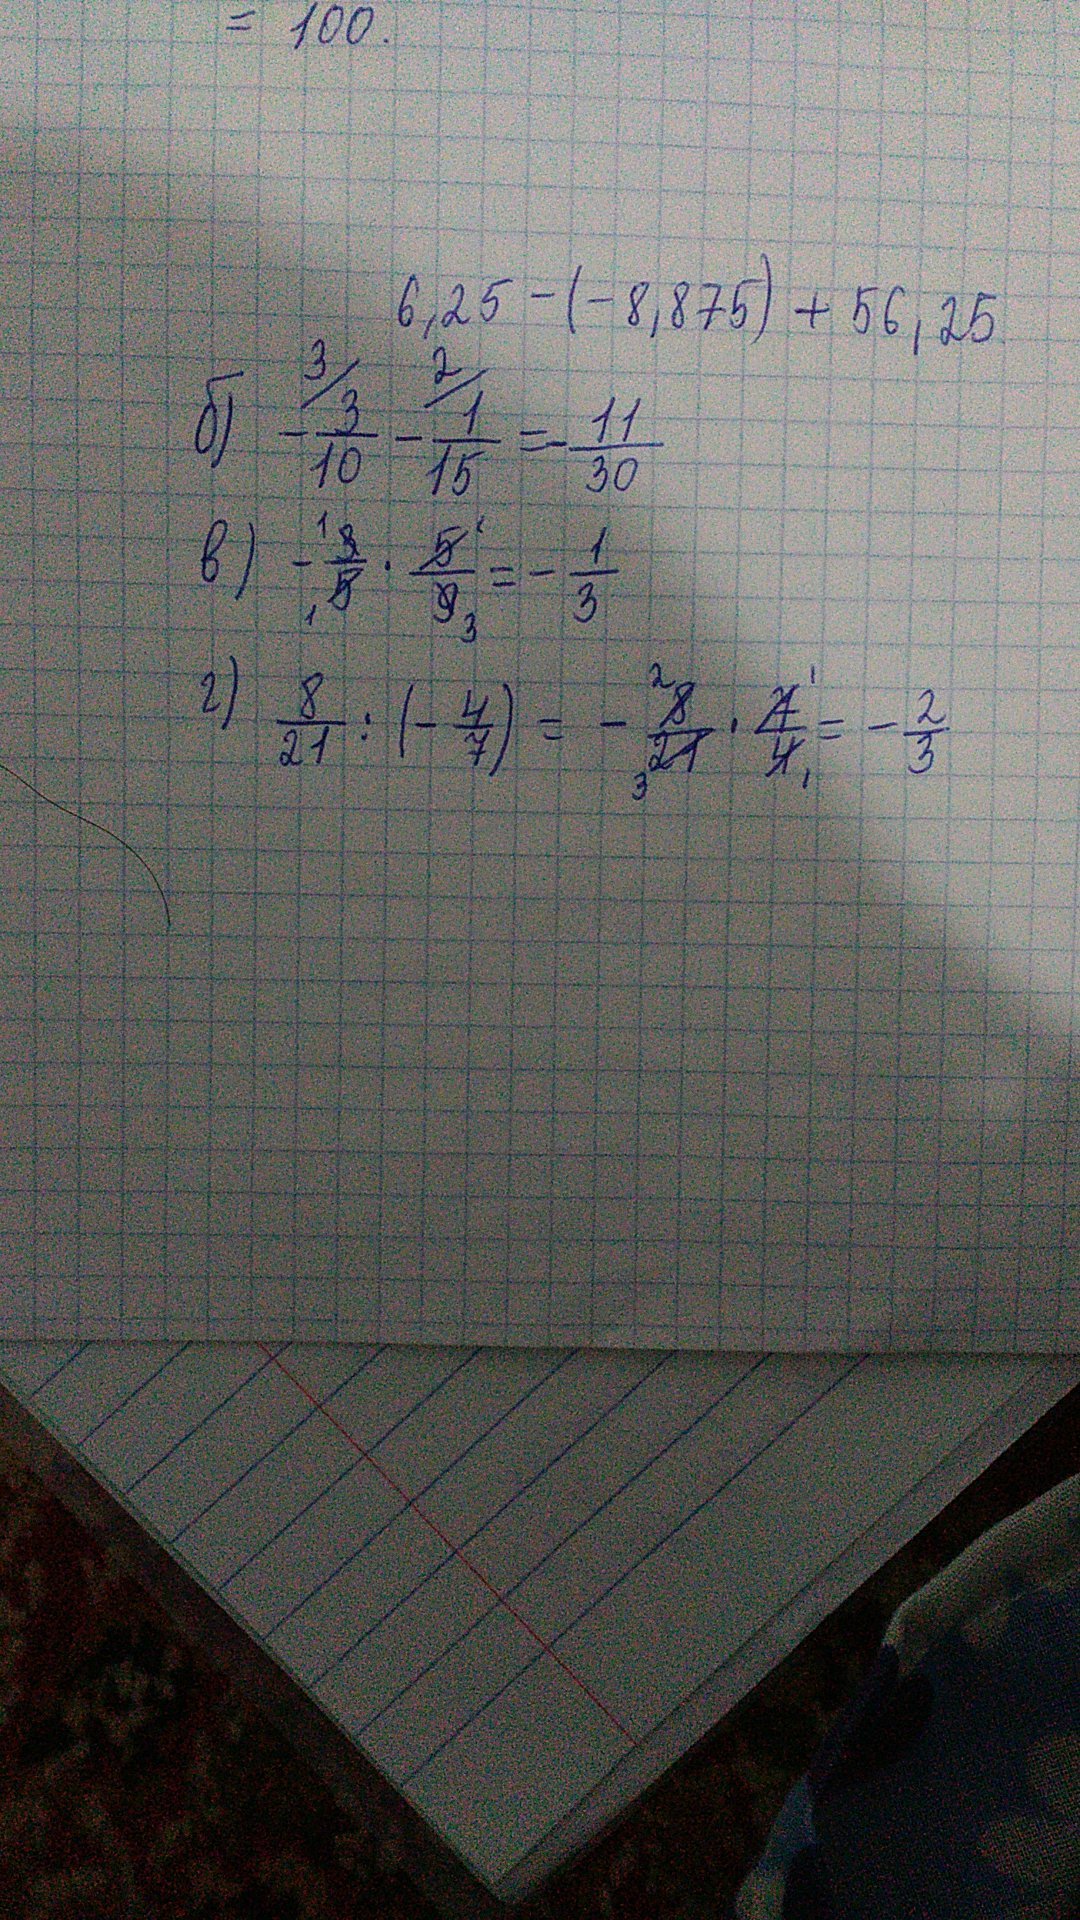 = 100.
6,25 - (-8,875) + 56,25
б) - 3/10 - 1/15 = - 11/30
в) - 3/5 · 5/9 = - 1/3
г) 8/21 : (- 4/7) = - 8/21 · 7/4 = - 2/3